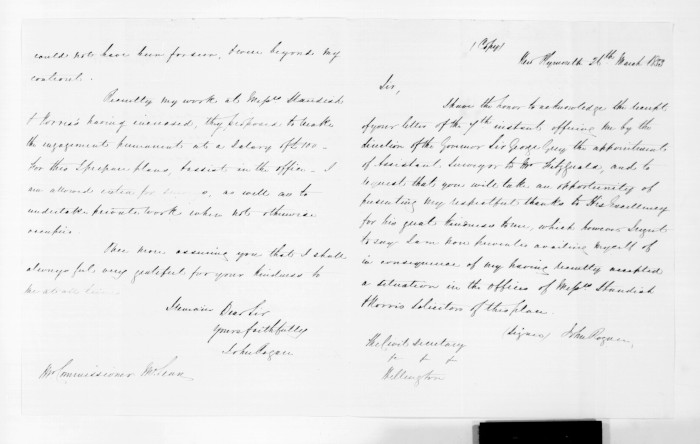 could not have been forseen, & were beyond my
control.
Recently my work at Messrs Standish
& Norris's having increased, they proposed to make
the engagement permanent at a Salary of £100 -
For this I prepare plans, & assist in the office - I
am allowed as well as to
undertake private work when not otherwise
occupied.
Once more assuring you that I shall
always feel very grateful for your kindness to
me
I remain Dear Sir
Yours faithfully
John Rogan
Mr Commissioner McLean
(Copy)
New Plymouth 26th March 1853
Sir,
I have the honor to acknowledge the receipt
of your letter of the 7th instant offering me by the
direction of the Governor Sir George Grey the appointment
of Assistant Surveyor to Mr Fitzgerald, and to
request that you will take an opportunity of
presenting my respectful thanks to His Excellency
for his great kindness to me, which however I regret
to say I am now prevented availing myself of
in consequence of my having recently accepted
a situation in the offices of Messrs Standish
& Norris Solicitors of this place.
(signed) John Rogan
The Civil Secretary
+ + +
Wellington